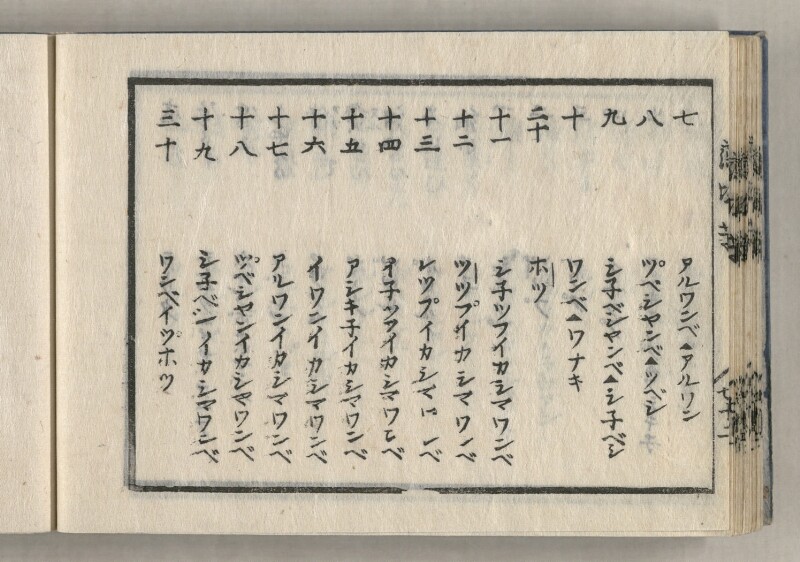 七 アルワンベ▲アルワン
八 ツ゚ベシヤンベ▲ツベシ
九 シ子ベシヤンベ▲シ子ベシ
十 ワンベ▲ワナキ
二十 ホツ
十一 シ子ツフイカシマワンベ
十二 ツツプイカシマワンベ
十三 レツプイカシマワンベ
十四 イ子ツフイカシマワンベ
十五 アシキ子イカシマワンベ
十六 イワンイカシマワンベ
十七 アルワンイカシマワンベ
十八 ツ゚ベシヤンイカシマワンベ
十九 シ子ベシンイカシマワンベ
三十 ワンベイツ゚ホツ